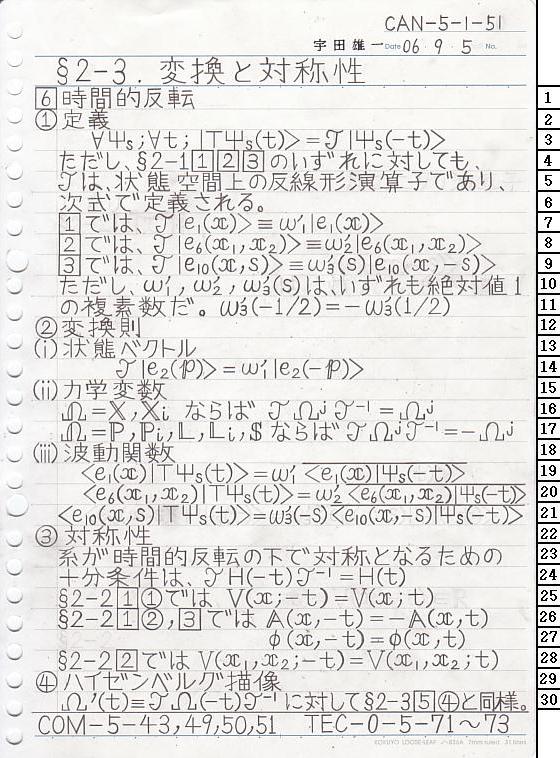 CAN-5-1-51
宇田雄一 Date 06 9 5 No.
§2-3. 変換と対称性
6 時間的反転
① 定義
∀Ψs;∀t; |TΨs(t)> = 𝒯|Ψs(-t)>
ただし、§2-1 1 2 3 のいずれに対しても、
𝒯は、状態空間上の反線形演算子であり、
次式で定義される。
1 では、𝒯|e₁(x)> ≡ ω'₁|e₁(x)>
2 では、𝒯|e₆(x₁,x₂)> ≡ ω'₂|e₆(x₁,x₂)>
3 では、𝒯|e₁₀(x,s)> ≡ ω'₃(s)|e₁₀(x,-s)>
ただし、ω'₁, ω'₂, ω'₃(s)は、いずれも絶対値1
の複素数だ。ω'₃(-1/2)=-ω'₃(1/2)
② 変換則
(i) 状態ベクトル
𝒯|e₂(p)> = ω'₁|e₂(-p)>
(ii) 力学変数
Ω = X, Xi ならば 𝒯Ωʲ𝒯⁻¹ = Ωʲ
Ω = P, Pi, L, Li, S ならば 𝒯Ωʲ𝒯⁻¹ = -Ωʲ
(iii) 波動関数
<e₁(x)|TΨs(t)> = ω'₁ <e₁(x)|Ψs(-t)>
<e₆(x₁,x₂)|TΨs(t)> = ω'₂ <e₆(x₁,x₂)|Ψs(-t)>
<e₁₀(x,s)|TΨs(t)> = ω'₃(-s) <e₁₀(x,-s)|Ψs(-t)>
③ 対称性
系が時間的反転の下で対称となるための
十分条件は、𝒯H(-t)𝒯⁻¹ = H(t)
§2-2 1 ① では V(x;-t) = V(x;t)
§2-2 1 ②, 3 では A(x,-t) = -A(x,t)
φ(x,-t) = φ(x,t)
§2-2 2 では V(x₁,x₂;-t) = V(x₁,x₂;t)
④ ハイゼンベルグ描像
Ω'(t) ≡ 𝒯Ω(-t)𝒯⁻¹ に対して§2-3 5 ④と同様。
COM-5-43,49,50,51 TEC-0-5-71〜73
KOKUYO LOOSE-LEAF ノ-836A 7mm ruled 31 lines
1
2
3
4
5
6
7
8
9
10
11
12
13
14
15
16
17
18
19
20
21
22
23
24
25
26
27
28
29
30